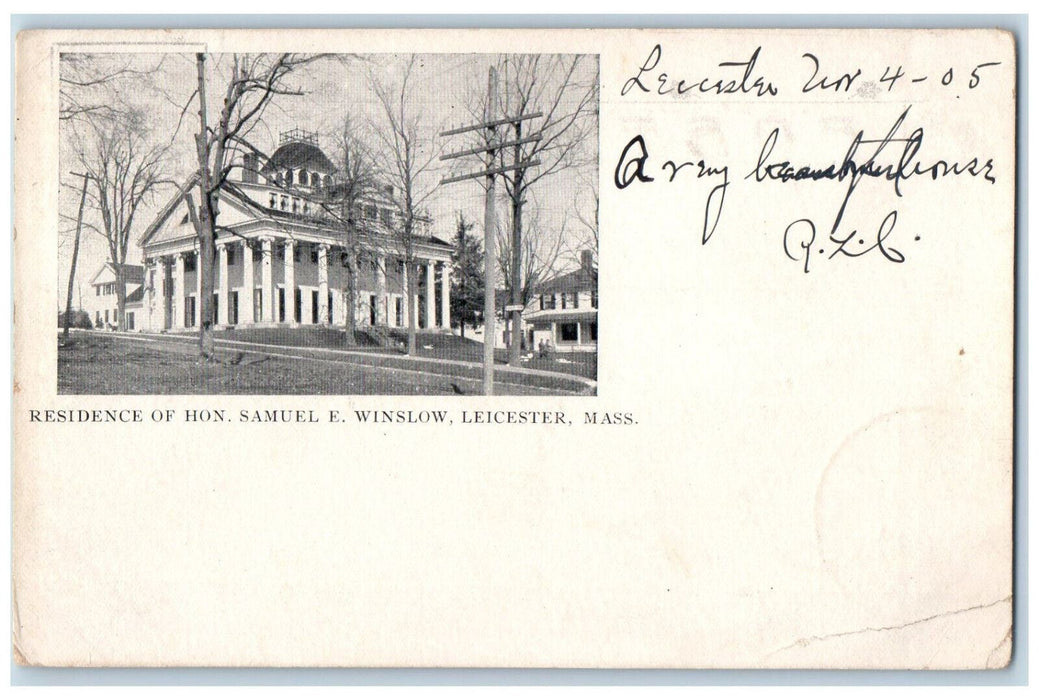 Leicester Nov 4-05
A very beautiful house
R.L.C.
RESIDENCE OF HON. SAMUEL E. WINSLOW, LEICESTER, MASS.